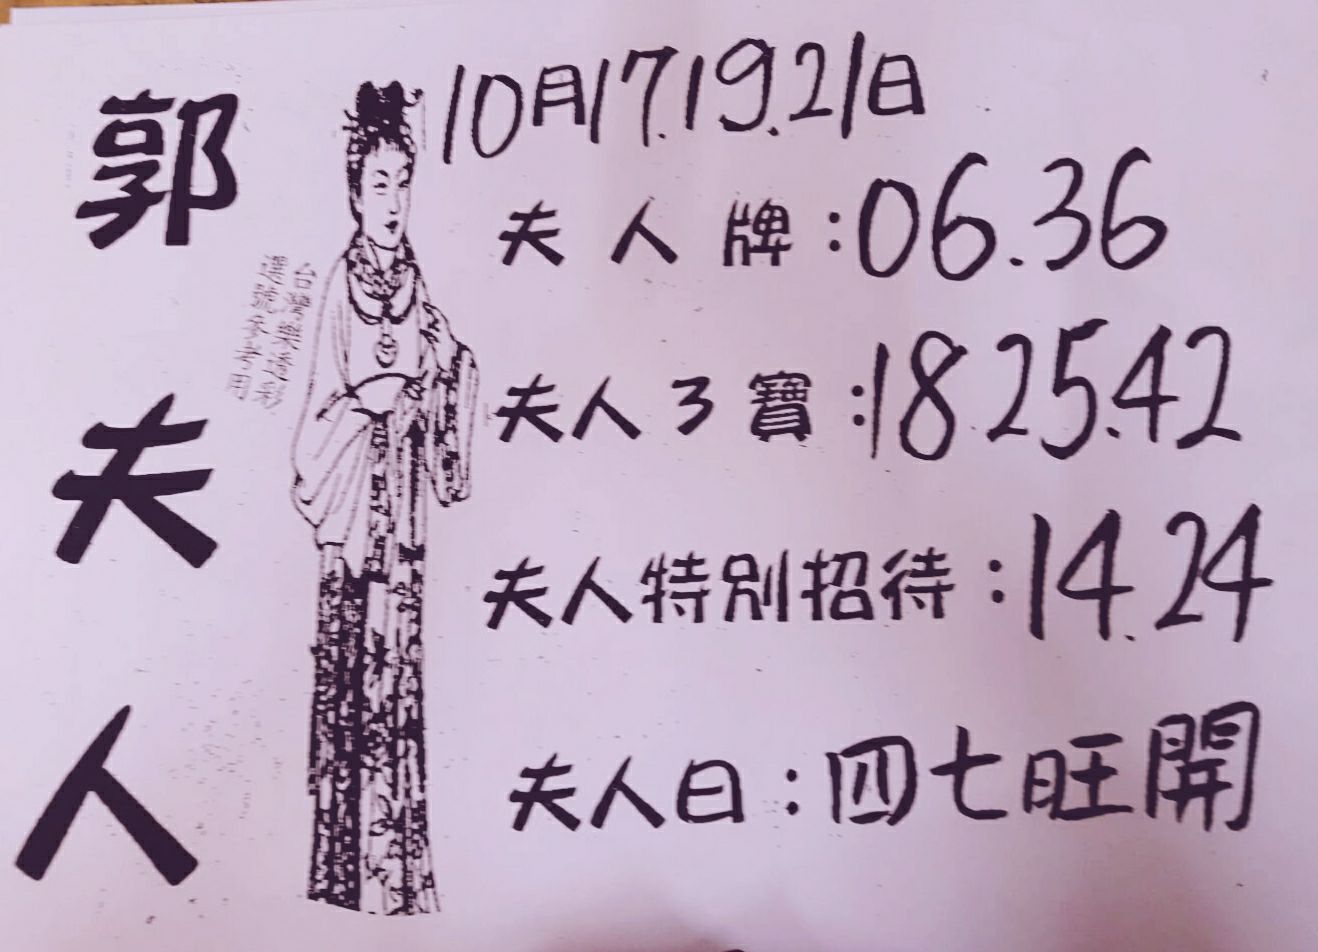 郭夫人
10月17.19.21日
夫人牌:06.36
夫人3寶:18.25.42
夫人特別招待:14.24
夫人日:四七旺開